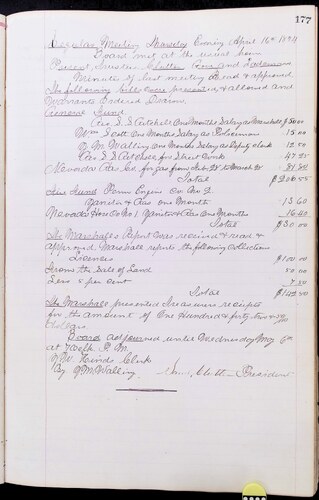 177
Regular Meeting Thursday Evening April 16th 1874
Board met at the usual hour
Present, Trustees Clutter and
Minutes of last meeting Read & approved
The following bills were presented & allowed and
Warrants Ordered Drawn
General Fund
Geo. S. S. Getchell One Months Salary as Marshall $50.00
Wm Scott One Months Salary as Policeman 15.00
J. M. Walling One Months Salary as Deputy Clerk 12.50
Geo. S. S. Getchell For Street Work 47.25
Nevada Gas Co. for gas from Feby to March
Total
Fire Fund Penn Engine Co. No 2
Janitor & Gas one Month 13.60
Nevada Hose Co No 1 Janitor & Gas One Month 16.40
Total $30.00
The Marshalls Report Was received & read &
approved. Marshall reports the following collections
Licenses $100.00
From the Sale of Land 50.00
Less per cent
Total
The Marshall presented Treasurers receipts
for the amount of One Hundred & forty two
dollars
Board adjourned until Wednesday May 6th
at 7 o'clk P. M.
Clerk
By J. M. Walling
President